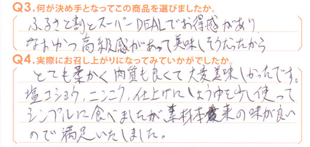 Q3.何が決め手となってこの商品を選びましたか。
ふるさと割とスーパーDEALでお得感があり
なおかつ高級感があって美味しそうだったから
Q4.実際にお召し上がりになってみていかがでしたか。
とても柔かく肉質も良くて大変美味しかったです。
塩コショウ、ニンニク、仕上げにしょうゆを少し使って
シンプルに食べましたが、素材本来の味が良い
ので満足いたしました。